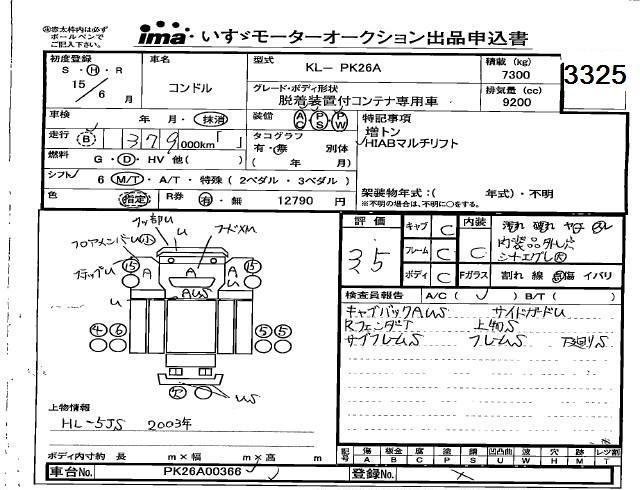 ㊟赤太枠内は必ず
ボールペンで
ご記入下さい。
ima・いすゞモーターオークション出品申込書
3325
初度登録
S・H・R
15／6 月
車名
コンドル
型式
KL－ PK26A
積載 (kg)
7300
グレード・ボディ形状
脱着装置付コンテナ専用車
排気量 (cc)
9200
車検
年・月・抹消
装備
AC PS PW
特記事項
増トン
HIABマルチリフト
走行
B 379,000km「 」
タコグラフ
有・無 別体
( 年 月)
燃料
G・D・HV 他( )
シフト
6 M/T・A/T・特殊 (2ペダル・3ペダル)
架装物年式：( 年式)・不明
※不明の場合は、不明に○をする。
色
指定
R券
有・無
12790 円
評価
3.5
キャブ C
フレーム C
ボディ C
内装 C
Fガラス
汚れ 破れ ヤケ スレ
内装品外した
割れ 線 傷 イバリ
フロアメンバーU小
U
フードメU
15
A
A
A
15
AWS
U
4 6
5 5
R
WS
検査員報告
A/C ( ✓ ) B/T ( )
キャブバックAWS サイドガードU
RフェンダーT 上物S
サブフレームS フレームS 下廻りS
上物情報
HL-5JS 2003年
ボディ内寸約 長 m×幅 m×高 m
記号
傷 A
板金 B
腐 C
塗 P
錆 S
凹凸曲 U
波 W
穴 H
跡 M
レツ割 T
車台No.
PK26A00366
登録No.